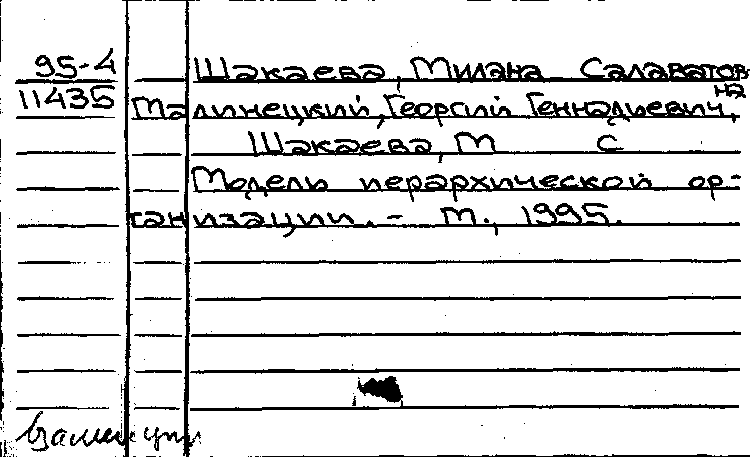 95-4 Шакаева, Милана Салаватовна
11435 Малинецкий, Георгий Геннадьевич,
Шакаева, М С
Модель иерархической ор-
ганизации. - М., 1995.